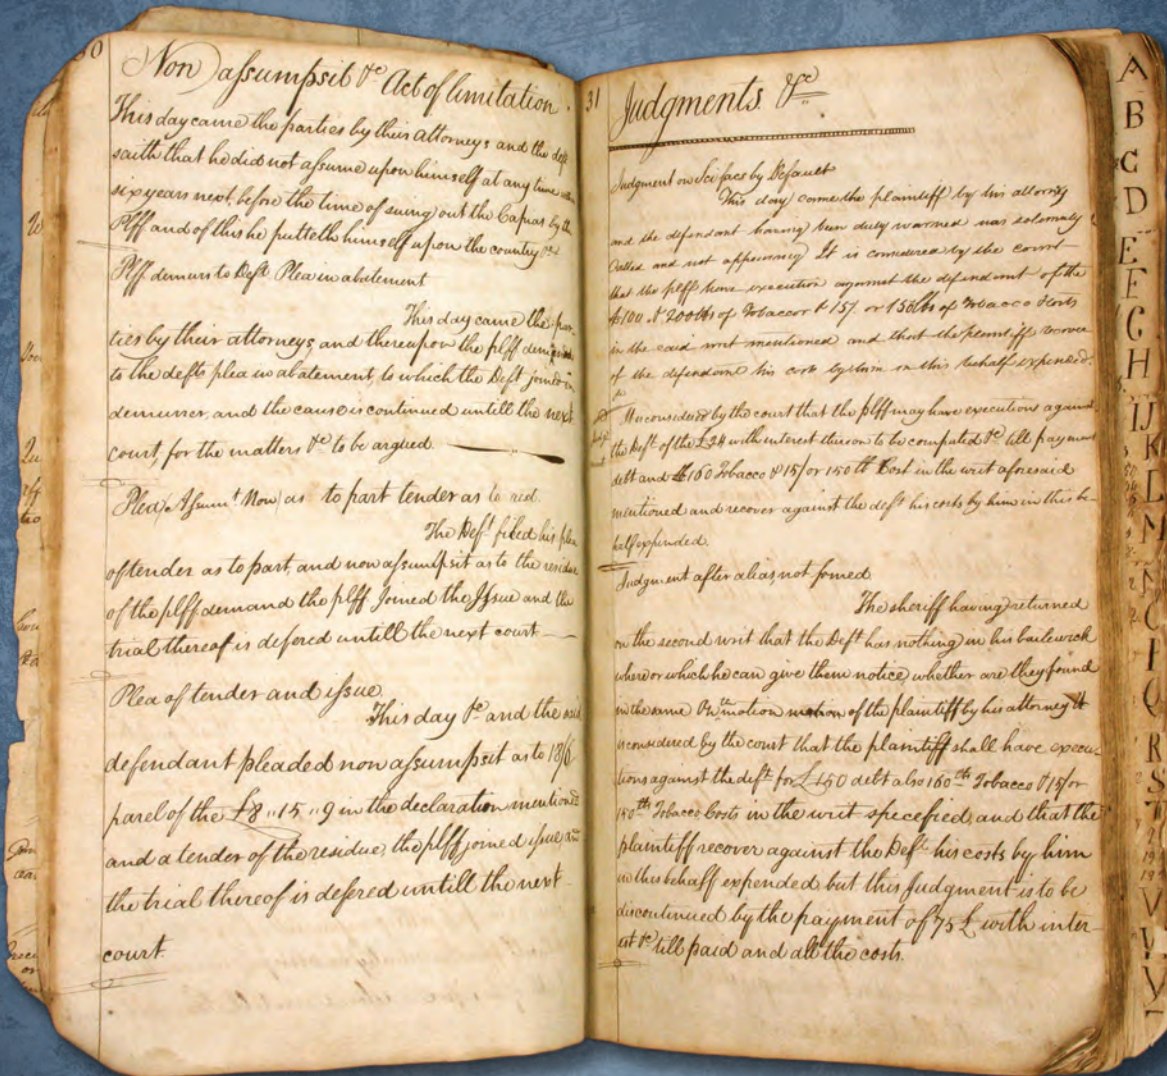 30
Non assumpsit &c Act of limitation
This day came the parties by their attorneys and the deft
saith that he did not assume upon himself at any time
six years next before the time of suing out the Capias by the
Plff and of this he putteth himself upon the country &c
Plff demurs to Deft Plea in abatement
This day came the par-
ties by their attorneys and thereupon the plff
to the defts plea in abatement, to which the Deft joined in
demurrer, and the cause is continued untill the next
court, for the matters &c to be argued.
Plea Assumt. Non as to part tender as to
The Deft filed his plea
of tender as to part, and non assumpsit as to the residue
of the plff demand the plff Joined the Issue and the
trial thereof is defered untill the next court
Plea of tender and issue
This day &c and the said
defendant pleaded non assumpsit as to 18/6
parel of the £8 ,, 15 ,, 9 in the declaration mentioned
and a tender of the residue, the plff joined issue and
the trial thereof is defered untill the next
court.
31
Judgments &c
Judgment on Sci facs by Default
This day came the plaintiff by his attorney
and the defendant having been duly warned was solemnly
Called and not appearing It is considered by the court
that the plff have execution against the defendant of the
£100 & 200lbs of Tobacco & 15/ or 150lbs of Tobacco Costs
in the said writ mentioned and that the plaintiff recover
of the defendant his costs by him in this behalf expended.
It is considered by the court that the plff may have executions against
the Deft of the £24 with interest thereon to be computed &c till payment
debt and 160 Tobacco & 15/ or 150 lb Cost in the writ aforesaid
mentioned and recover against the deft his costs by him in this be-
half expended.
Judgment after alias, not found
The sheriff having returned
on the second writ that the Deft has nothing in his bailewick
where or which he can give them notice, whether are they found
in the same On motion of the plaintiff by his attorney It
is considered by the court that the plaintiff shall have execu-
tions against the deft for £150 debt also 160 lb Tobacco & 15/ or
150 lb Tobacco Costs in the writ specefied, and that the
plaintiff recover against the Deft his costs by him
in this behalf expended but this Judgment is to be
discontinued by the payment of 75 £ with inter-
est &c till paid and all the costs.
A
B
C
D
E
F
G
H
IJ
K
L
M
N
O
P
Q
R
S
T
V